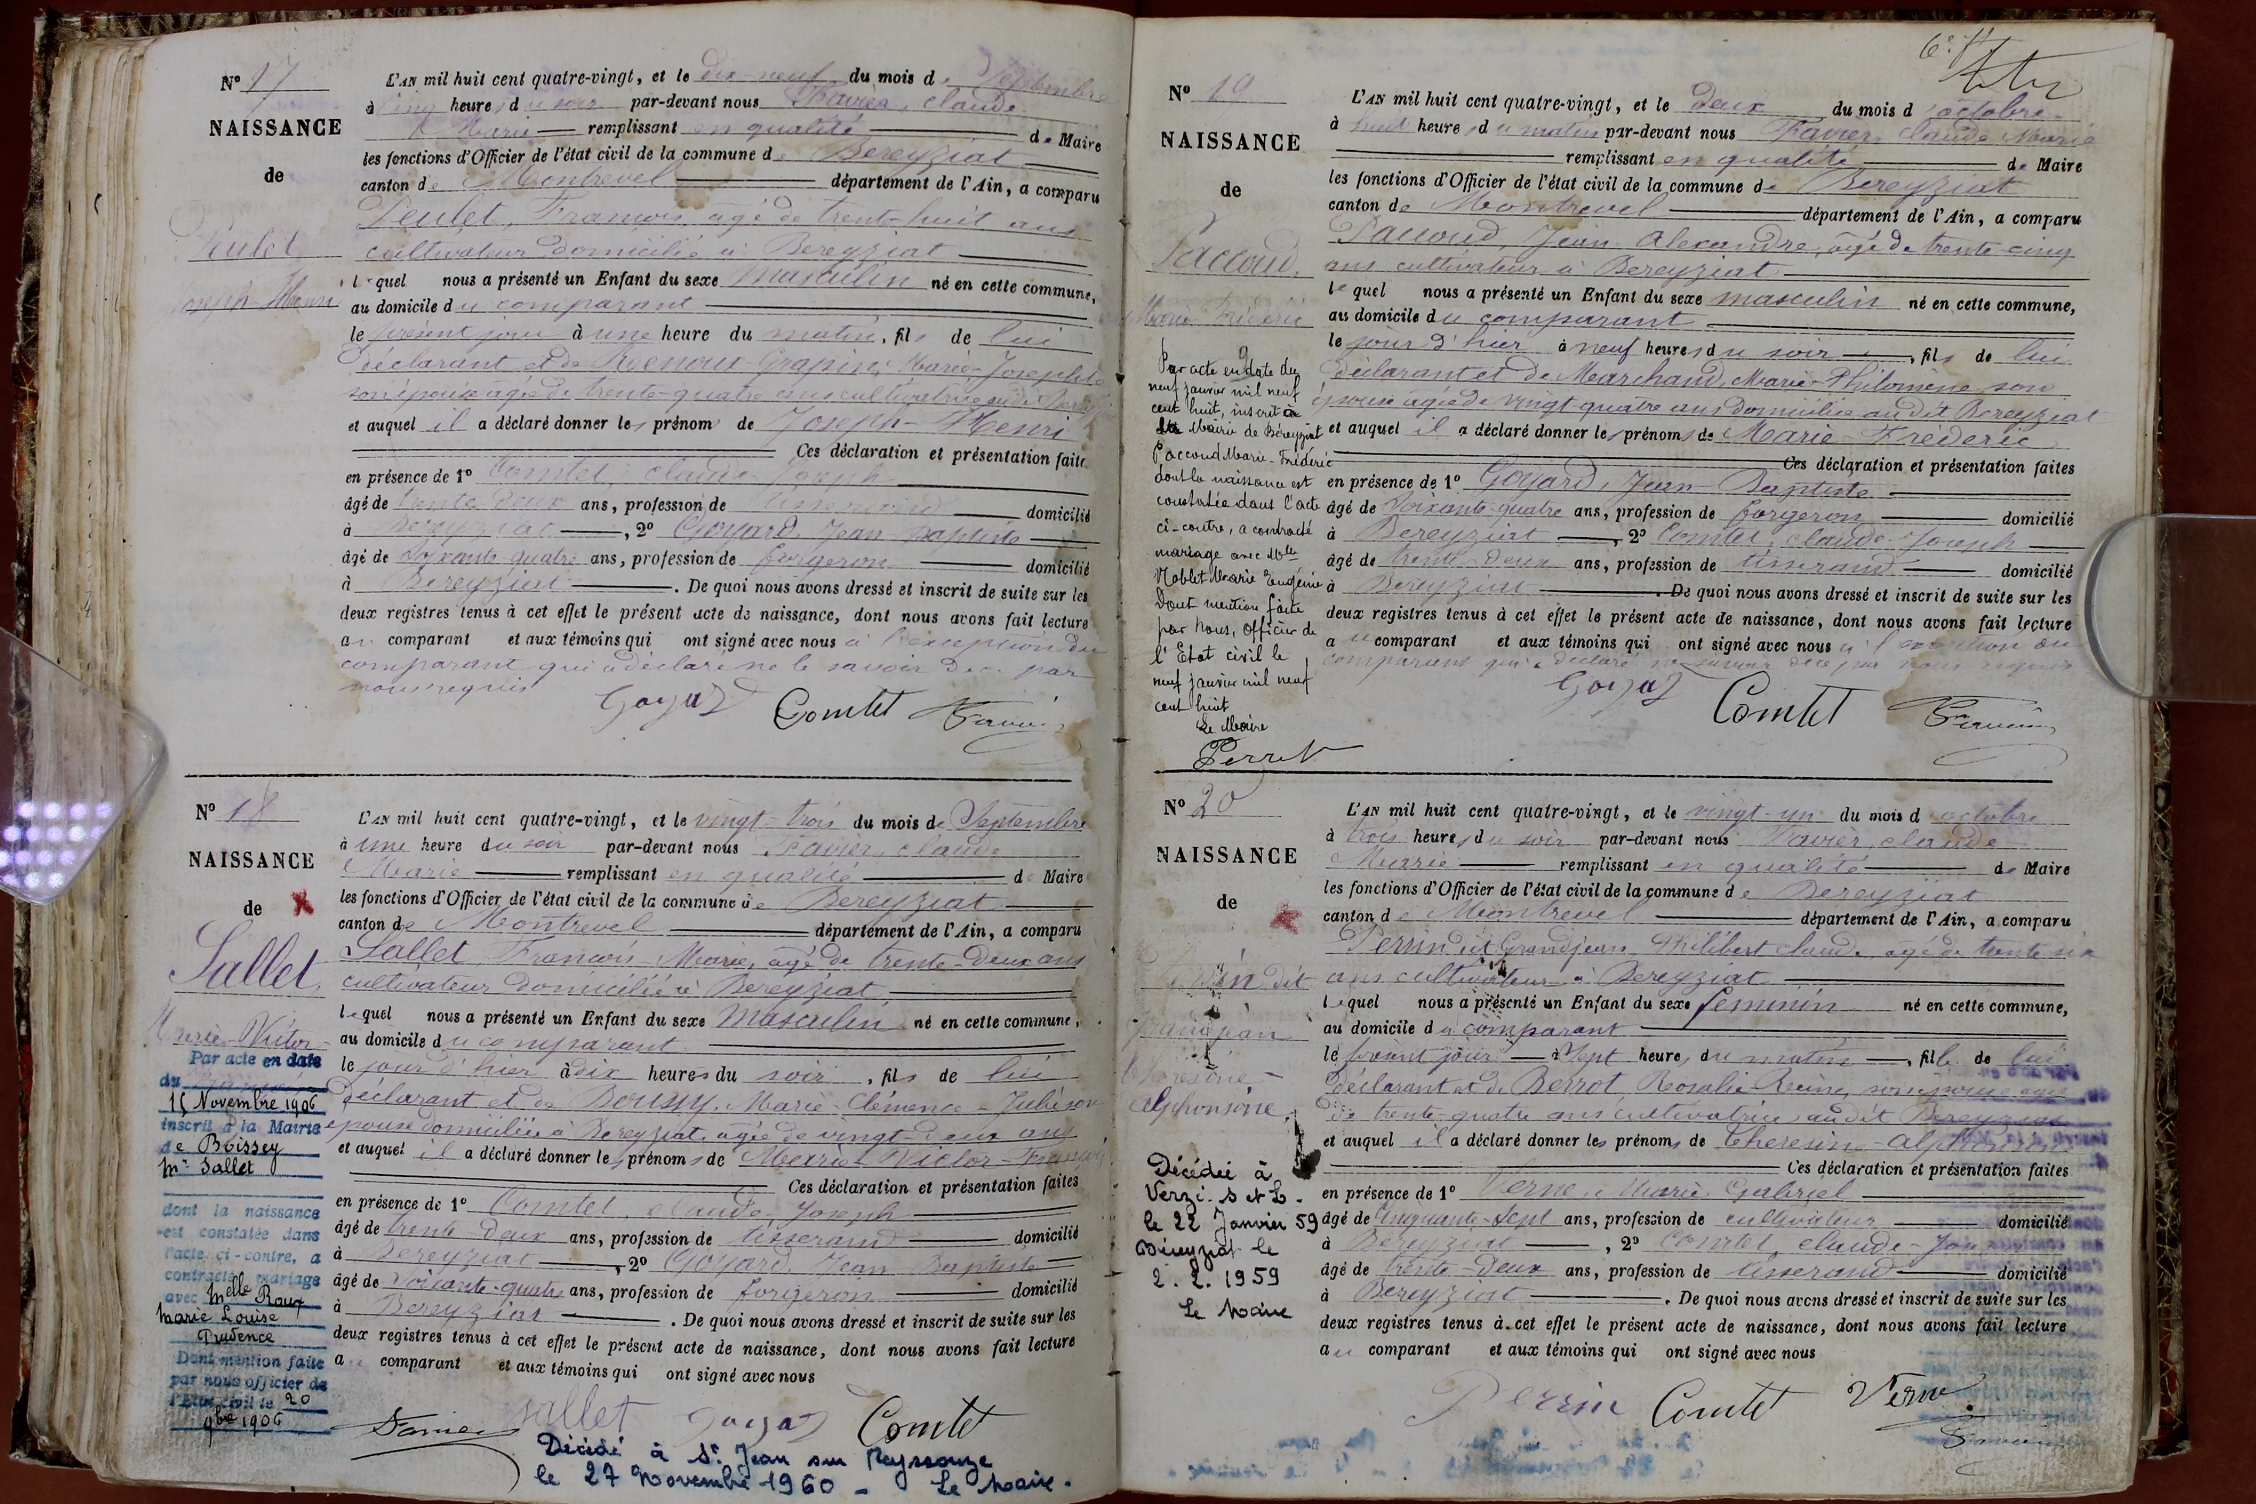 N° 17
NAISSANCE
de
Peulet
Joseph-Henri
L'AN mil huit cent quatre-vingt, et le dix-neuf du mois de Septembre
à cinq heures du soir par-devant nous Favier, claude
Marie remplissant en qualité de Maire
les fonctions d'Officier de l'état civil de la commune de Bereyziat
canton de Montrevel département de l'Ain, a comparu
Peulet, François âgé de trente-huit ans
cultivateur domicilié à Bereyziat
lequel nous a présenté un Enfant du sexe Masculin né en cette commune,
au domicile du comparant
le présent jour à une heure du matin, fils de lui
déclarant et de Marie-Josephte
son épouse agée de trente-quatre ans cultivatrice audit
et auquel il a déclaré donner les prénoms de Joseph-Henri
Ces déclaration et présentation faites
en présence de 1° Comtet, claude Joseph
âgé de trente deux ans, profession de tisserand domicilié
à Bereyziat, 2° Goyard, Jean-Baptiste
âgé de soixante-quatre ans, profession de forgeron domicilié
à Bereyziat. De quoi nous avons dressé et inscrit de suite sur les
deux registres tenus à cet effet le présent acte de naissance, dont nous avons fait lecture
au comparant et aux témoins qui ont signé avec nous à l'exception du
comparant qui a déclaré ne le savoir de ce par
nous requis
Goyad Comtet Favier
N° 18
NAISSANCE
de
Sallet
Marie-Victor
Par acte en date
du
15 Novembre 1906
inscrit à la Mairie
de Boissey
Mr Sallet
dont la naissance
est constatée dans
l'acte ci-contre, a
contracté mariage
avec Melle Roux
Marie Louise
Prudence
Dont mention faite
par nous officier de
l'Etat civil le 20
9bre 1906
L'AN mil huit cent quatre-vingt, et le vingt-trois du mois de Septembre
à une heure du soir par-devant nous Favier, claude
Marie remplissant en qualité de Maire
les fonctions d'Officier de l'état civil de la commune de Bereyziat
canton de Montrevel département de l'Ain, a comparu
Sallet, François-Marie, agé de trente-deux ans
cultivateur domicilié à Bereyziat
lequel nous a présenté un Enfant du sexe Masculin né en cette commune,
au domicile du comparant
le jour d'hier à dix heures du soir, fils de lui
déclarant et de Marie-Clémence-Julie son
épouse domiciliée à Bereyziat, agée de vingt-deux ans
et auquel il a déclaré donner les prénoms de Marie-Victor-François
Ces déclaration et présentation faites
en présence de 1° Comtet, claude-Joseph
âgé de trente deux ans, profession de tisserand domicilié
à Bereyziat, 2° Goyard, Jean Baptiste
âgé de soixante-quatre ans, profession de forgeron domicilié
à Bereyziat. De quoi nous avons dressé et inscrit de suite sur les
deux registres tenus à cet effet le présent acte de naissance, dont nous avons fait lecture
au comparant et aux témoins qui ont signé avec nous
Favier Sallet Goyad Comtet
Décédé à St Jean sur Reyssouze
le 27 Novembre 1960 - Le Maire.
N° 19
NAISSANCE
de
Paccoud
Marie Fréderic
Par acte en date du
neuf janvier mil neuf
cent huit, inscrit à
la Mairie de Béreyziat
Paccoud Marie-Frédéric
dont la naissance est
constatée dans l'acte
ci-contre, a contracté
mariage avec Mlle
Noblet Marie Eugénie
Dont mention faite
par nous, Officier de
l'Etat civil le
neuf janvier mil neuf
cent huit
Le Maire
Perret
L'AN mil huit cent quatre-vingt, et le deux du mois d'octobre
à huit heures du matin par-devant nous Favier, claude Marie
remplissant en qualité de Maire
les fonctions d'Officier de l'état civil de la commune de Bereyziat
canton de Montrevel département de l'Ain, a comparu
Paccoud, Jean Alexandre, âgé de trente-cinq
ans cultivateur à Bereyziat
lequel nous a présenté un Enfant du sexe masculin né en cette commune,
au domicile du comparant
le jour d'hier à neuf heures du soir, fils de lui
déclarant et de Marchand, Marie-Philomène son
épouse agée de vingt quatre ans domiciliée audit Bereyziat
et auquel il a déclaré donner les prénoms de Marie-Fréderic
Ces déclaration et présentation faites
en présence de 1° Goyard, Jean-Baptiste
âgé de soixante-quatre ans, profession de forgeron domicilié
à Bereyziat, 2° Comtet, claude-Joseph
âgé de trente-deux ans, profession de tisserand domicilié
à Bereyziat. De quoi nous avons dressé et inscrit de suite sur les
deux registres tenus à cet effet le présent acte de naissance, dont nous avons fait lecture
au comparant et aux témoins qui ont signé avec nous à l'exception du
comparant qui a déclaré ne savoir de ce par nous requis
Goyad Comtet Favier
N° 20
NAISSANCE
de
Perrin dit
Grandjean
Theresine-
Alphonsine
Décédée à
Verzé S et L.
le 22 Janvier 59
Béreyziat le
2.2.1959
Le Maire
L'AN mil huit cent quatre-vingt, et le vingt-un du mois d'octobre
à trois heures du soir par-devant nous Favier, claude
Marie remplissant en qualité de Maire
les fonctions d'Officier de l'état civil de la commune de Bereyziat
canton de Montrevel département de l'Ain, a comparu
Perrin dit Grandjean, Philibert claude agé de trente six
ans cultivateur à Bereyziat
lequel nous a présenté un Enfant du sexe feminin né en cette commune,
au domicile du comparant
le présent jour à sept heures du matin, fille de lui
déclarant et de Berrot Rosalie Reine, son épouse agée
de trente-quatre ans cultivatrice audit Bereyziat
et auquel il a déclaré donner les prénoms de Theresine-Alphonsine
Ces déclaration et présentation faites
en présence de 1° Verne, Marie Gabriel
âgé de cinquante-sept ans, profession de cultivateur domicilié
à Bereyziat, 2° Comtet, claude-Joseph
âgé de trente-deux ans, profession de tisserand domicilié
à Bereyziat. De quoi nous avons dressé et inscrit de suite sur les
deux registres tenus à cet effet le présent acte de naissance, dont nous avons fait lecture
au comparant et aux témoins qui ont signé avec nous
Perrin Comtet Verne
Favier